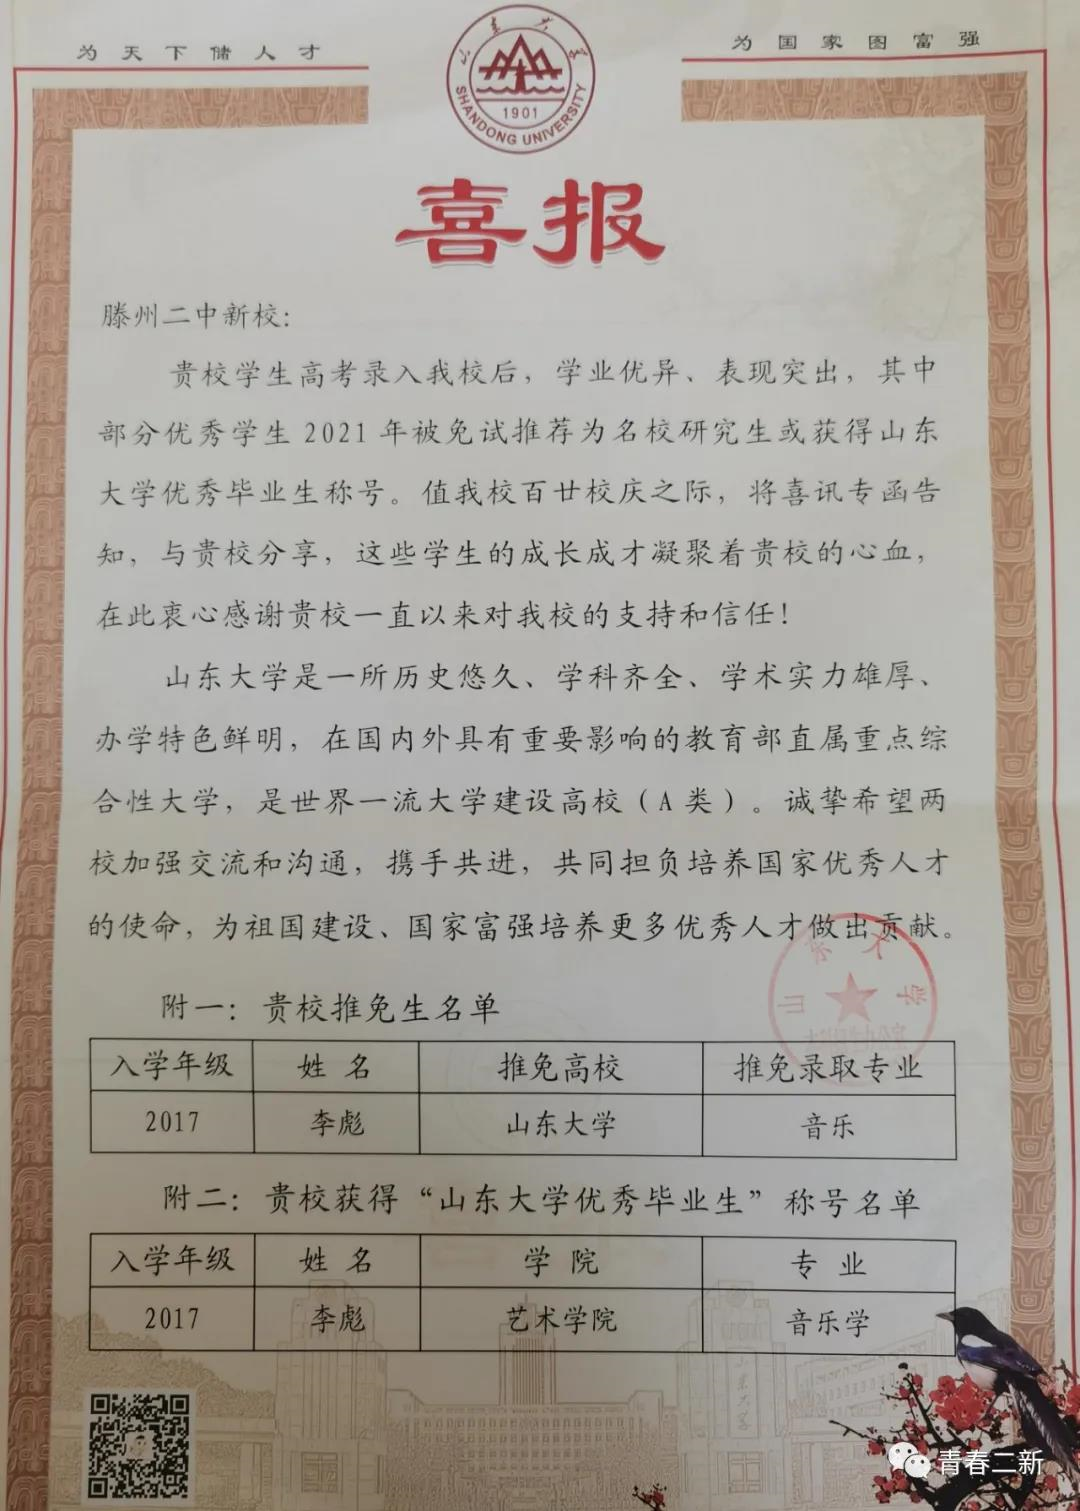 为天下储人才
为国家图富强
山东大学
1901
SHANDONG UNIVERSITY
喜报
滕州二中新校:
贵校学生高考录入我校后，学业优异、表现突出，其中
部分优秀学生 2021 年被免试推荐为名校研究生或获得山东
大学优秀毕业生称号。值我校百廿校庆之际，将喜讯专函告
知，与贵校分享，这些学生的成长成才凝聚着贵校的心血，
在此衷心感谢贵校一直以来对我校的支持和信任！
山东大学是一所历史悠久、学科齐全、学术实力雄厚、
办学特色鲜明，在国内外具有重要影响的教育部直属重点综
合性大学，是世界一流大学建设高校（A 类）。诚挚希望两
校加强交流和沟通，携手共进，共同担负培养国家优秀人才
的使命，为祖国建设、国家富强培养更多优秀人才做出贡献。
山东大学
附一：贵校推免生名单
入学年级 姓 名 推免高校 推免录取专业
2017 李彪 山东大学 音乐
附二：贵校获得“山东大学优秀毕业生”称号名单
入学年级 姓 名 学 院 专 业
2017 李彪 艺术学院 音乐学
山东大学
青春二新